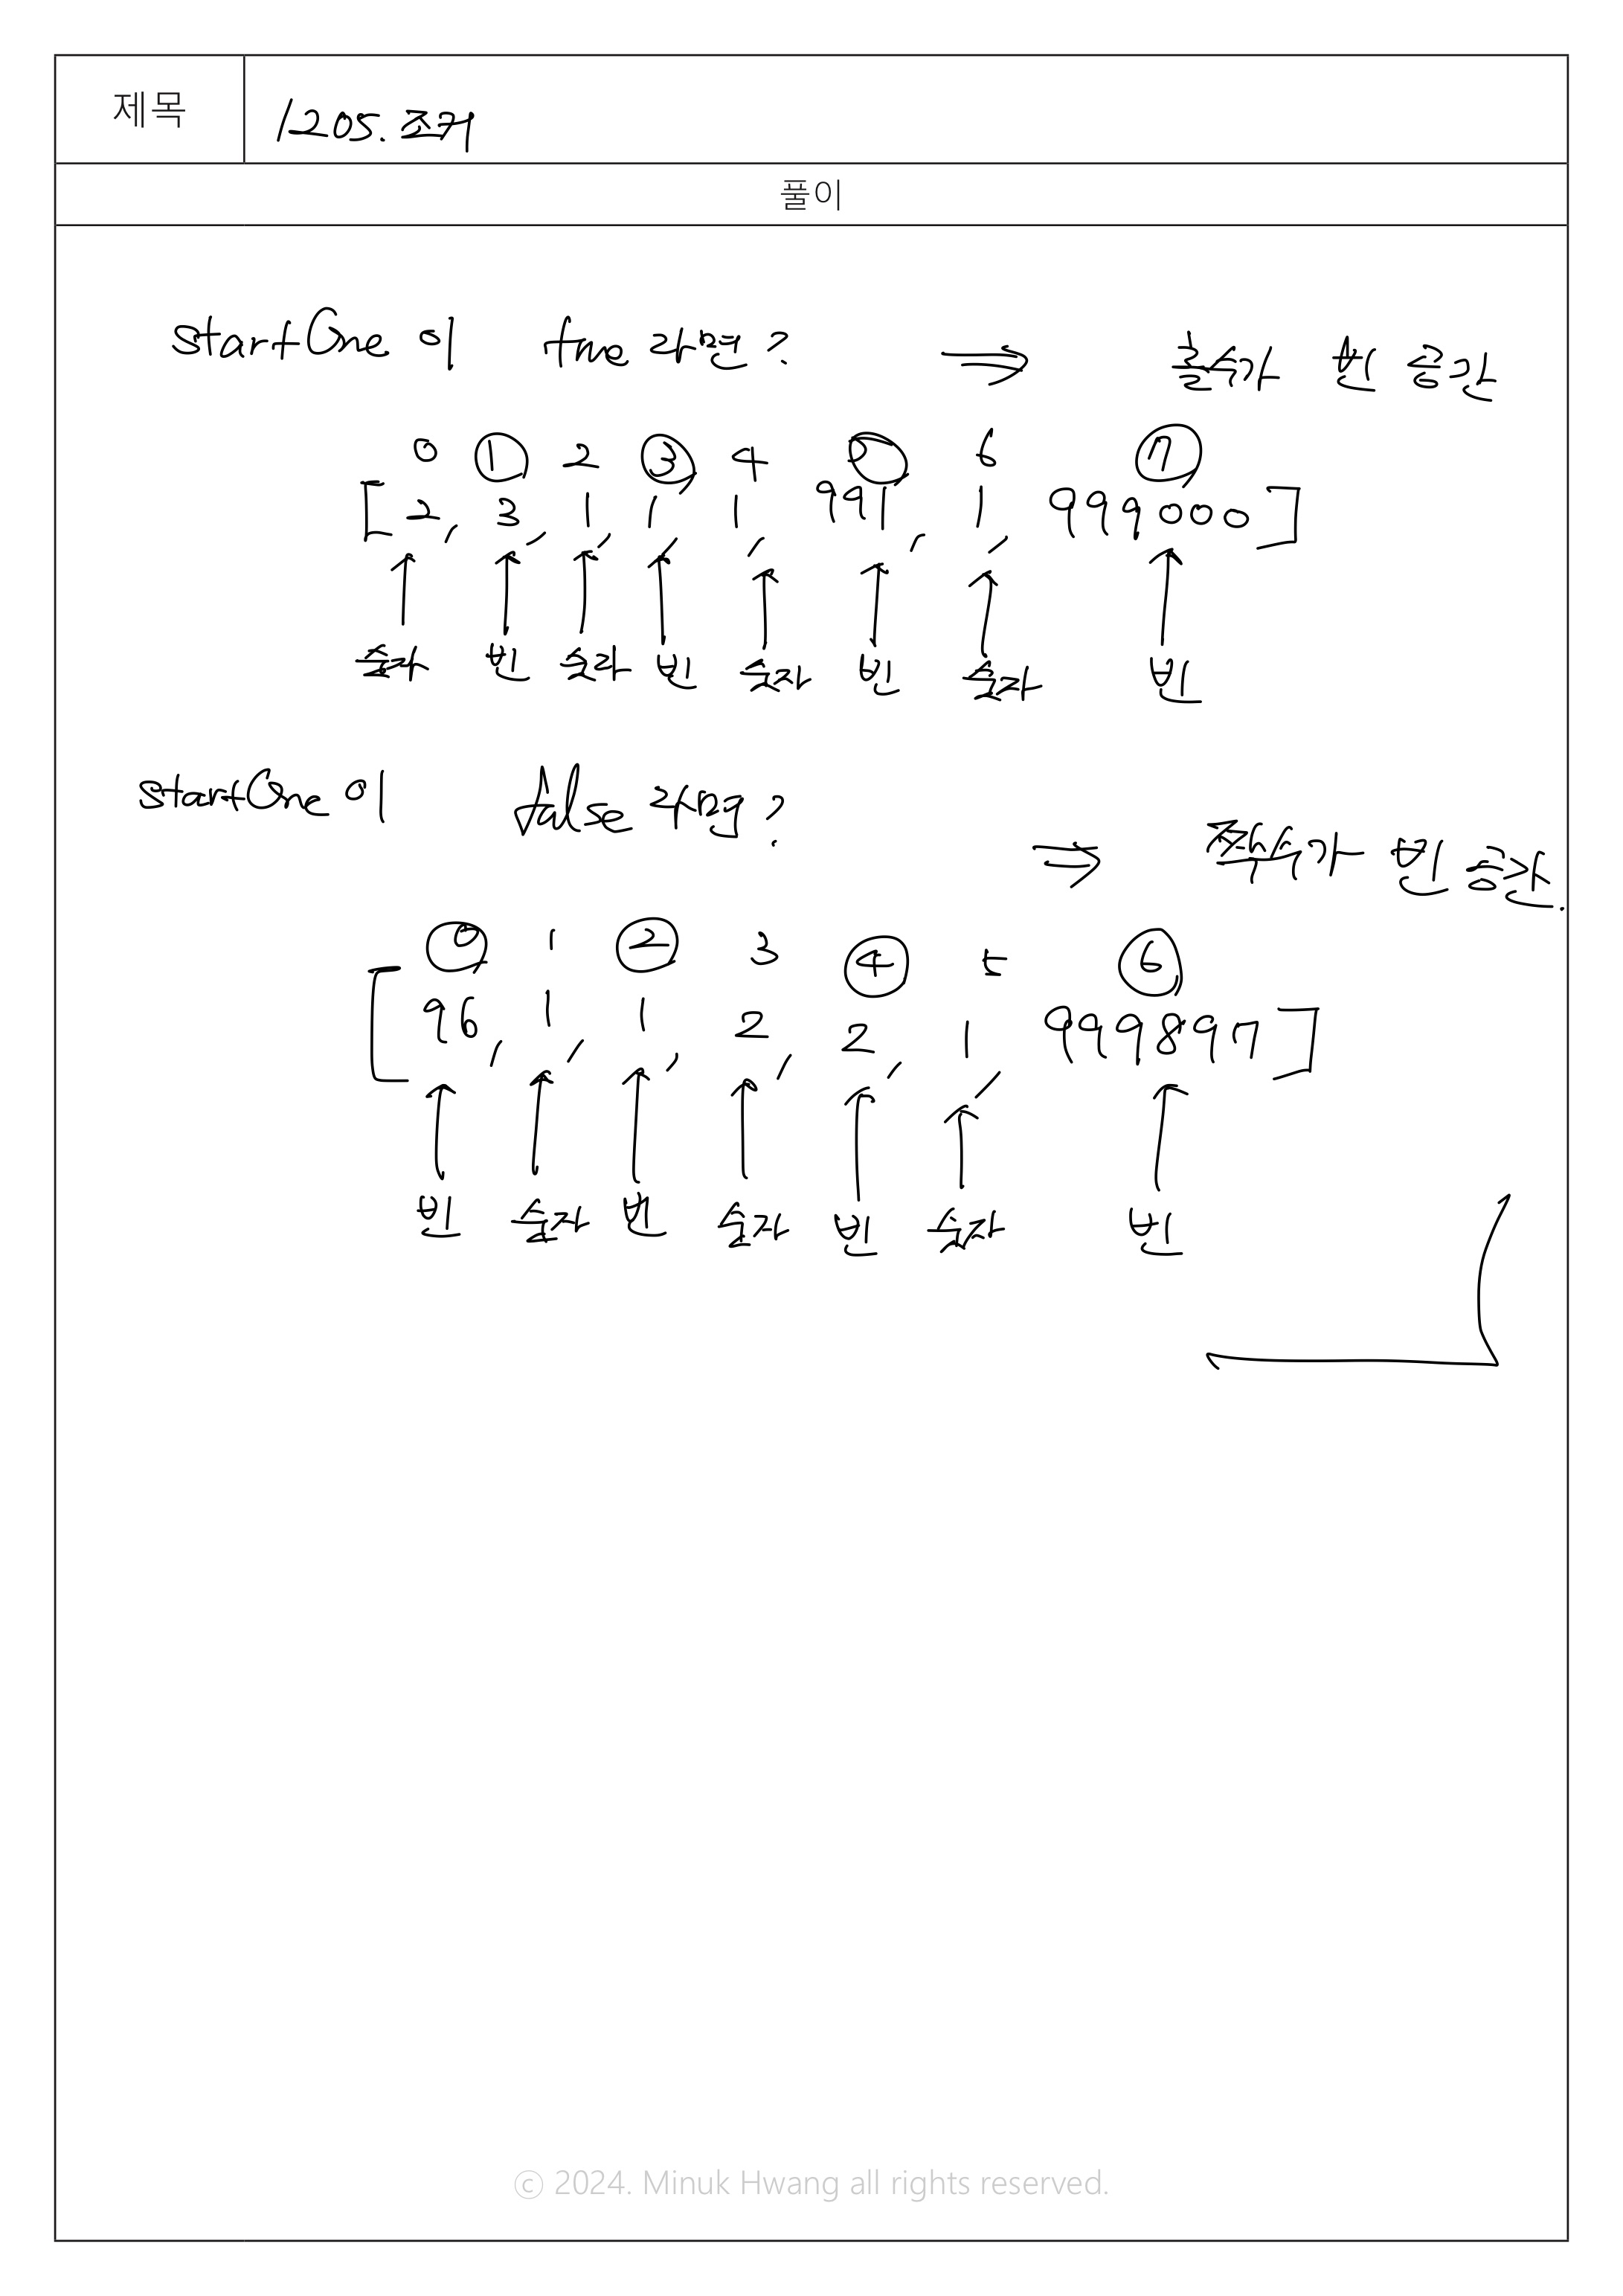 제목
1205. 조커
풀이
startOne 이 true 라면? ⇒ 홀수가 빈 공간
0 ① 2 ③ 4 ⑤ 6 ⑦
[2, 3, 1, 1, 1, 991, 1, 999000]
숫자 빈 숫자 빈 숫자 빈 숫자 빈
startOne 이 false 라면? ⇒ 짝수가 빈 공간.
⓪ 1 ② 3 ④ 5 ⑥
[96, 1, 1, 2, 2, 1, 999897]
빈 숫자 빈 숫자 빈 숫자 빈
© 2024. Minuk Hwang all rights reserved.